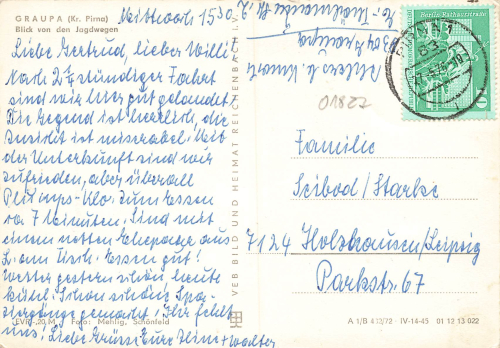 GRAUPA (Kr. Pirna)
Blick von den Jagdwegen
Mittwoch 15³⁰
Liebe Gertrud, lieber Willi
Nach 2½ stündiger Fahrt
sind wir hier gut gelandet
Die Gegend ist herrlich, die
Aussicht ist miserabel. Mit
der Unterkunft sind wir
zufrieden, aber überall
Plumps-Klo. Zum Essen
ca. 7 Minuten. Sind mit
einem netten Ehepaar aus
L. am Tisch. Essen gut!
Wetter gestern schön, heute
kühl. Schon schöne Spa-
ziergänge gemacht! Ihr fehlt
uns! Liebe Grüsse Eure + Walter
EVP -,20 M Foto: Mehlig, Schönfeld
VEB BILD UND HEIMAT REICHENBACH I. V.
8304 Graupa
PIRNA 1
83
Berlin Rathausstraße
10
01822
Familie
Seibod/Starke
7124 Holzhausen/Leipzig
Parkstr. 67
A 1/B 413/72 IV-14-45 01 13 13 022